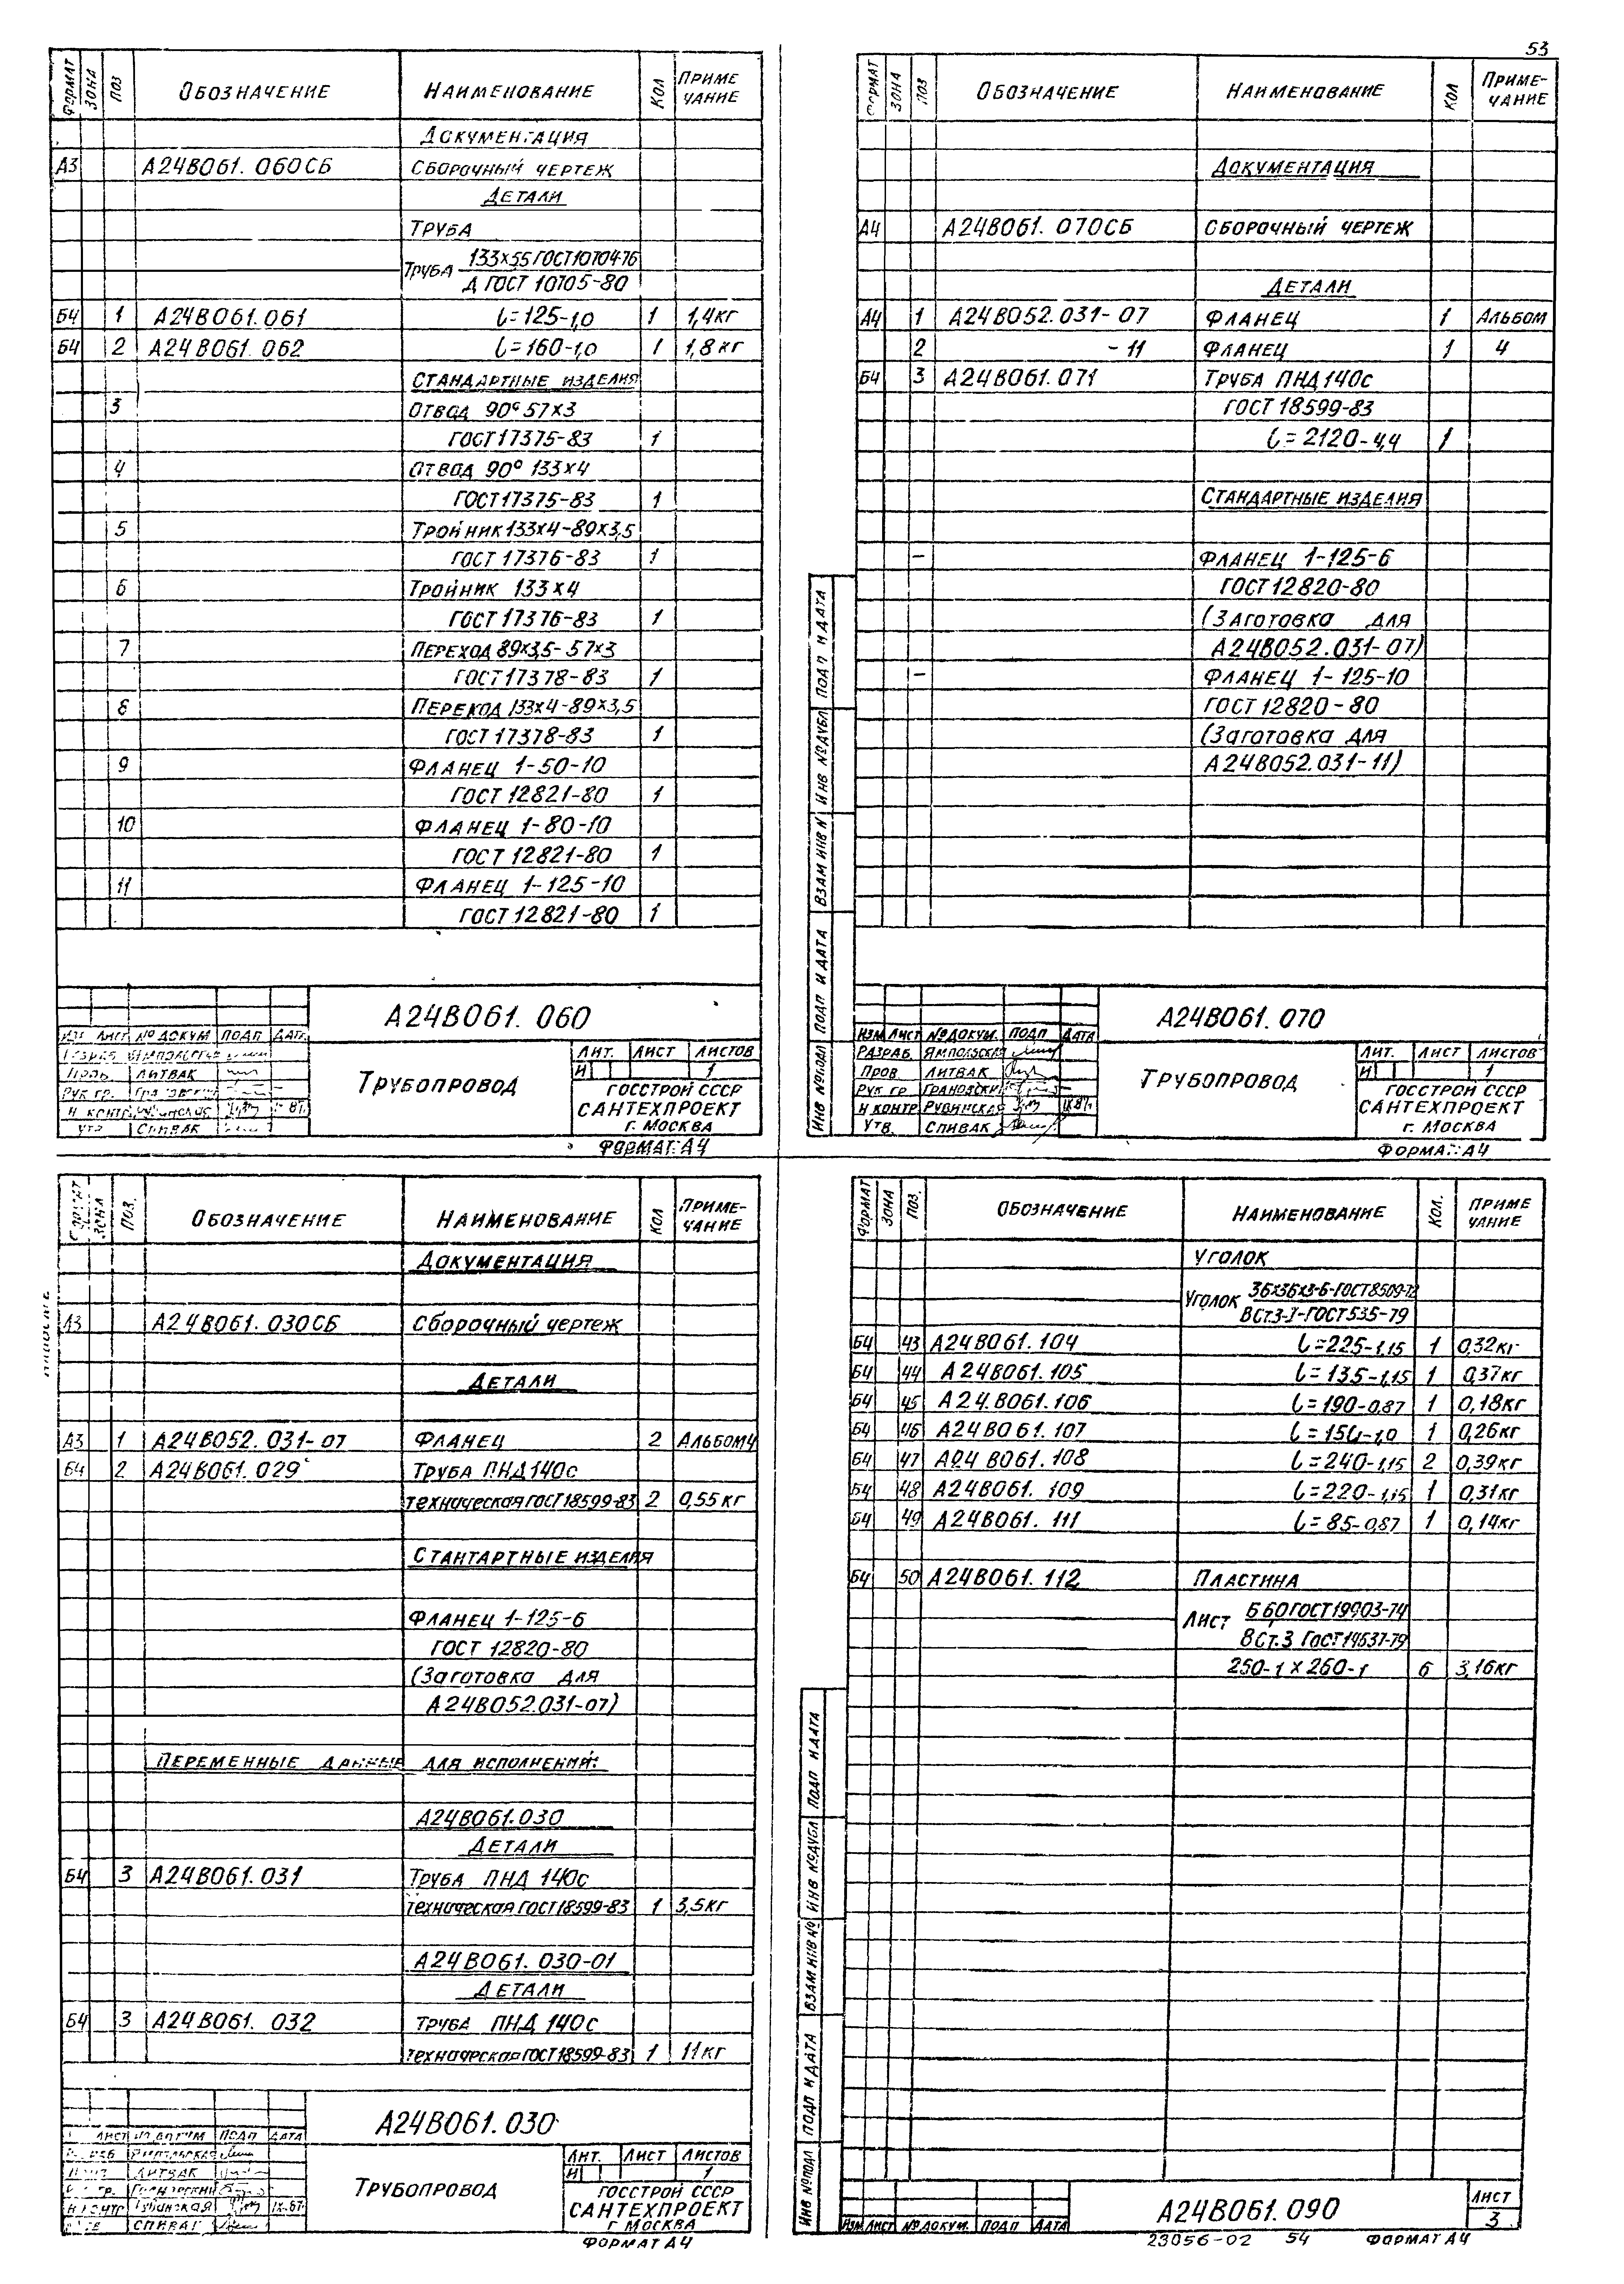 53
ФОРМАТ ЗОНА ПОЗ ОБОЗНАЧЕНИЕ НАИМЕНОВАНИЕ КОЛ ПРИМЕЧАНИЕ
ДОКУМЕНТАЦИЯ
А3 А24В061.060СБ СБОРОЧНЫЙ ЧЕРТЕЖ
ДЕТАЛИ
ТРУБА
ТРУБА 133х55 ГОСТ10704-76
Д ГОСТ 10705-80
Б4 1 А24В061.061 l=125-1,0 1 1,4кг
Б4 2 А24В061.062 l=160-1,0 1 1,8кг
СТАНДАРТНЫЕ ИЗДЕЛИЯ
3 ОТВОД 90° 57х3
ГОСТ17375-83 1
4 ОТВОД 90° 133х4
ГОСТ17375-83 1
5 ТРОЙНИК 133х4-89х3,5
ГОСТ 17376-83 1
6 ТРОЙНИК 133х4
ГОСТ17376-83 1
7 ПЕРЕХОД 89х3,5-57х3
ГОСТ17378-83 1
8 ПЕРЕХОД 133х4-89х3,5
ГОСТ17378-83 1
9 ФЛАНЕЦ 1-50-10
ГОСТ 12821-80 1
10 ФЛАНЕЦ 1-80-10
ГОСТ 12821-80 1
11 ФЛАНЕЦ 1-125-10
ГОСТ 12821-80 1
А24В061.060
ЛИСТ № ДОКУМ ПОДП ДАТА
ЛИТВАК
РУК ГР.
Н КОНТР
УТВ СПИВАК
ТРУБОПРОВОД
ЛИТ. ЛИСТ ЛИСТОВ
И 1
ГОССТРОЙ СССР
САНТЕХПРОЕКТ
г. МОСКВА
ФОРМАТ А4
ФОРМАТ ЗОНА ПОЗ ОБОЗНАЧЕНИЕ НАИМЕНОВАНИЕ КОЛ ПРИМЕ-ЧАНИЕ
ДОКУМЕНТАЦИЯ
А4 А24В061.070СБ СБОРОЧНЫЙ ЧЕРТЕЖ
ДЕТАЛИ
А4 1 А24В052.031-07 ФЛАНЕЦ 1 АЛЬБОМ
2 -11 ФЛАНЕЦ 1 4
Б4 3 А24В061.071 ТРУБА ПНД 140С
ГОСТ 18599-83
l=2120-4,4 1
СТАНДАРТНЫЕ ИЗДЕЛИЯ
- ФЛАНЕЦ 1-125-6
ГОСТ12820-80
(ЗАГОТОВКА ДЛЯ
А24В052.031-07)
- ФЛАНЕЦ 1-125-10
ГОСТ12820-80
(ЗАГОТОВКА ДЛЯ
А24В052.031-11)
ИНВ №ПОДЛ ПОДП И ДАТА ВЗАМ ИНВ N ИНВ №ДУБЛ ПОДП И ДАТА
А24В061.070
ИЗМ ЛИСТ № ДОКУМ. ПОДП ДАТА
РАЗРАБ. ЯМПОЛЬСКАЯ
ПРОВ ЛИТВАК
РУК ГР ГРАНОВСКИЙ
Н КОНТР РУБИНСКАЯ
УТВ. СПИВАК
ТРУБОПРОВОД
ЛИТ. ЛИСТ ЛИСТОВ
И 1
ГОССТРОЙ СССР
САНТЕХПРОЕКТ
г. МОСКВА
ФОРМАТ А4
ЗОНА ПОЗ. ОБОЗНАЧЕНИЕ НАИМЕНОВАНИЕ КОЛ ПРИМЕ-ЧАНИЕ
ДОКУМЕНТАЦИЯ
А3 А24В061.030СБ СБОРОЧНЫЙ ЧЕРТЕЖ
ДЕТАЛИ
А3 1 А24В052.031-07 ФЛАНЕЦ 2 АЛЬБОМ4
Б4 2 А24В061.029 ТРУБА ПНД140С
ТЕХНИЧЕСКАЯ ГОСТ18599-83 2 0,55кг
СТАНТАРТНЫЕ ИЗДЕЛИЯ
ФЛАНЕЦ 1-125-6
ГОСТ 12820-80
(ЗАГОТОВКА ДЛЯ
А24В052.031-07)
ПЕРЕМЕННЫЕ ДАННЫЕ ДЛЯ ИСПОЛНЕНИЙ:
А24В061.030
ДЕТАЛИ
Б4 3 А24В061.031 ТРУБА ПНД 140С
ТЕХНИЧЕСКАЯ ГОСТ18599-83 1 3,5кг
А24В061.030-01
ДЕТАЛИ
Б4 3 А24В061.032 ТРУБА ПНД 140С
ТЕХНИЧЕСКАЯ ГОСТ18599-83 1 11кг
А24В061.030
ЛИСТ № ДОКУМ ПОДП ДАТА
ЯМПОЛЬСКАЯ
ЛИТВАК
Н КОНТР РУБИНСКАЯ
СПИВАК
ТРУБОПРОВОД
ЛИТ. ЛИСТ ЛИСТОВ
И 1
ГОССТРОЙ СССР
САНТЕХПРОЕКТ
г МОСКВА
ФОРМАТ А4
ФОРМАТ ЗОНА ПОЗ. ОБОЗНАЧЕНИЕ НАИМЕНОВАНИЕ КОЛ. ПРИМЕЧАНИЕ
УГОЛОК
УГОЛОК 36х36х3-Б-ГОСТ8509-72
ВСт.3-I-ГОСТ535-79
Б4 43 А24В061.104 l=225-1,15 1 0,32кг
Б4 44 А24В061.105 l=135-1,15 1 0,37кг
Б4 45 А24.В061.106 l=190-0,87 1 0,18кг
Б4 46 А24В061.107 l=154-1,0 1 0,26кг
Б4 47 А24В061.108 l=240-1,15 2 0,39кг
Б4 48 А24В061.109 l=220-1,15 1 0,31кг
Б4 49 А24В061.111 l=85-0,87 1 0,14кг
Б4 50 А24В061.112 ПЛАСТИНА
ЛИСТ Б 6,0 ГОСТ19903-74
ВСт.3 ГОСТ14637-79
250-1 х 260-1 6 3,16кг
ИНВ №ПОДЛ ПОДП И ДАТА ВЗАМ ИНВ № ИНВ №ДУБЛ ПОДП И ДАТА
ИЗМ ЛИСТ № ДОКУМ. ПОДП ДАТА
А24В061.090
ЛИСТ
3
23056-02 54 ФОРМАТ А4